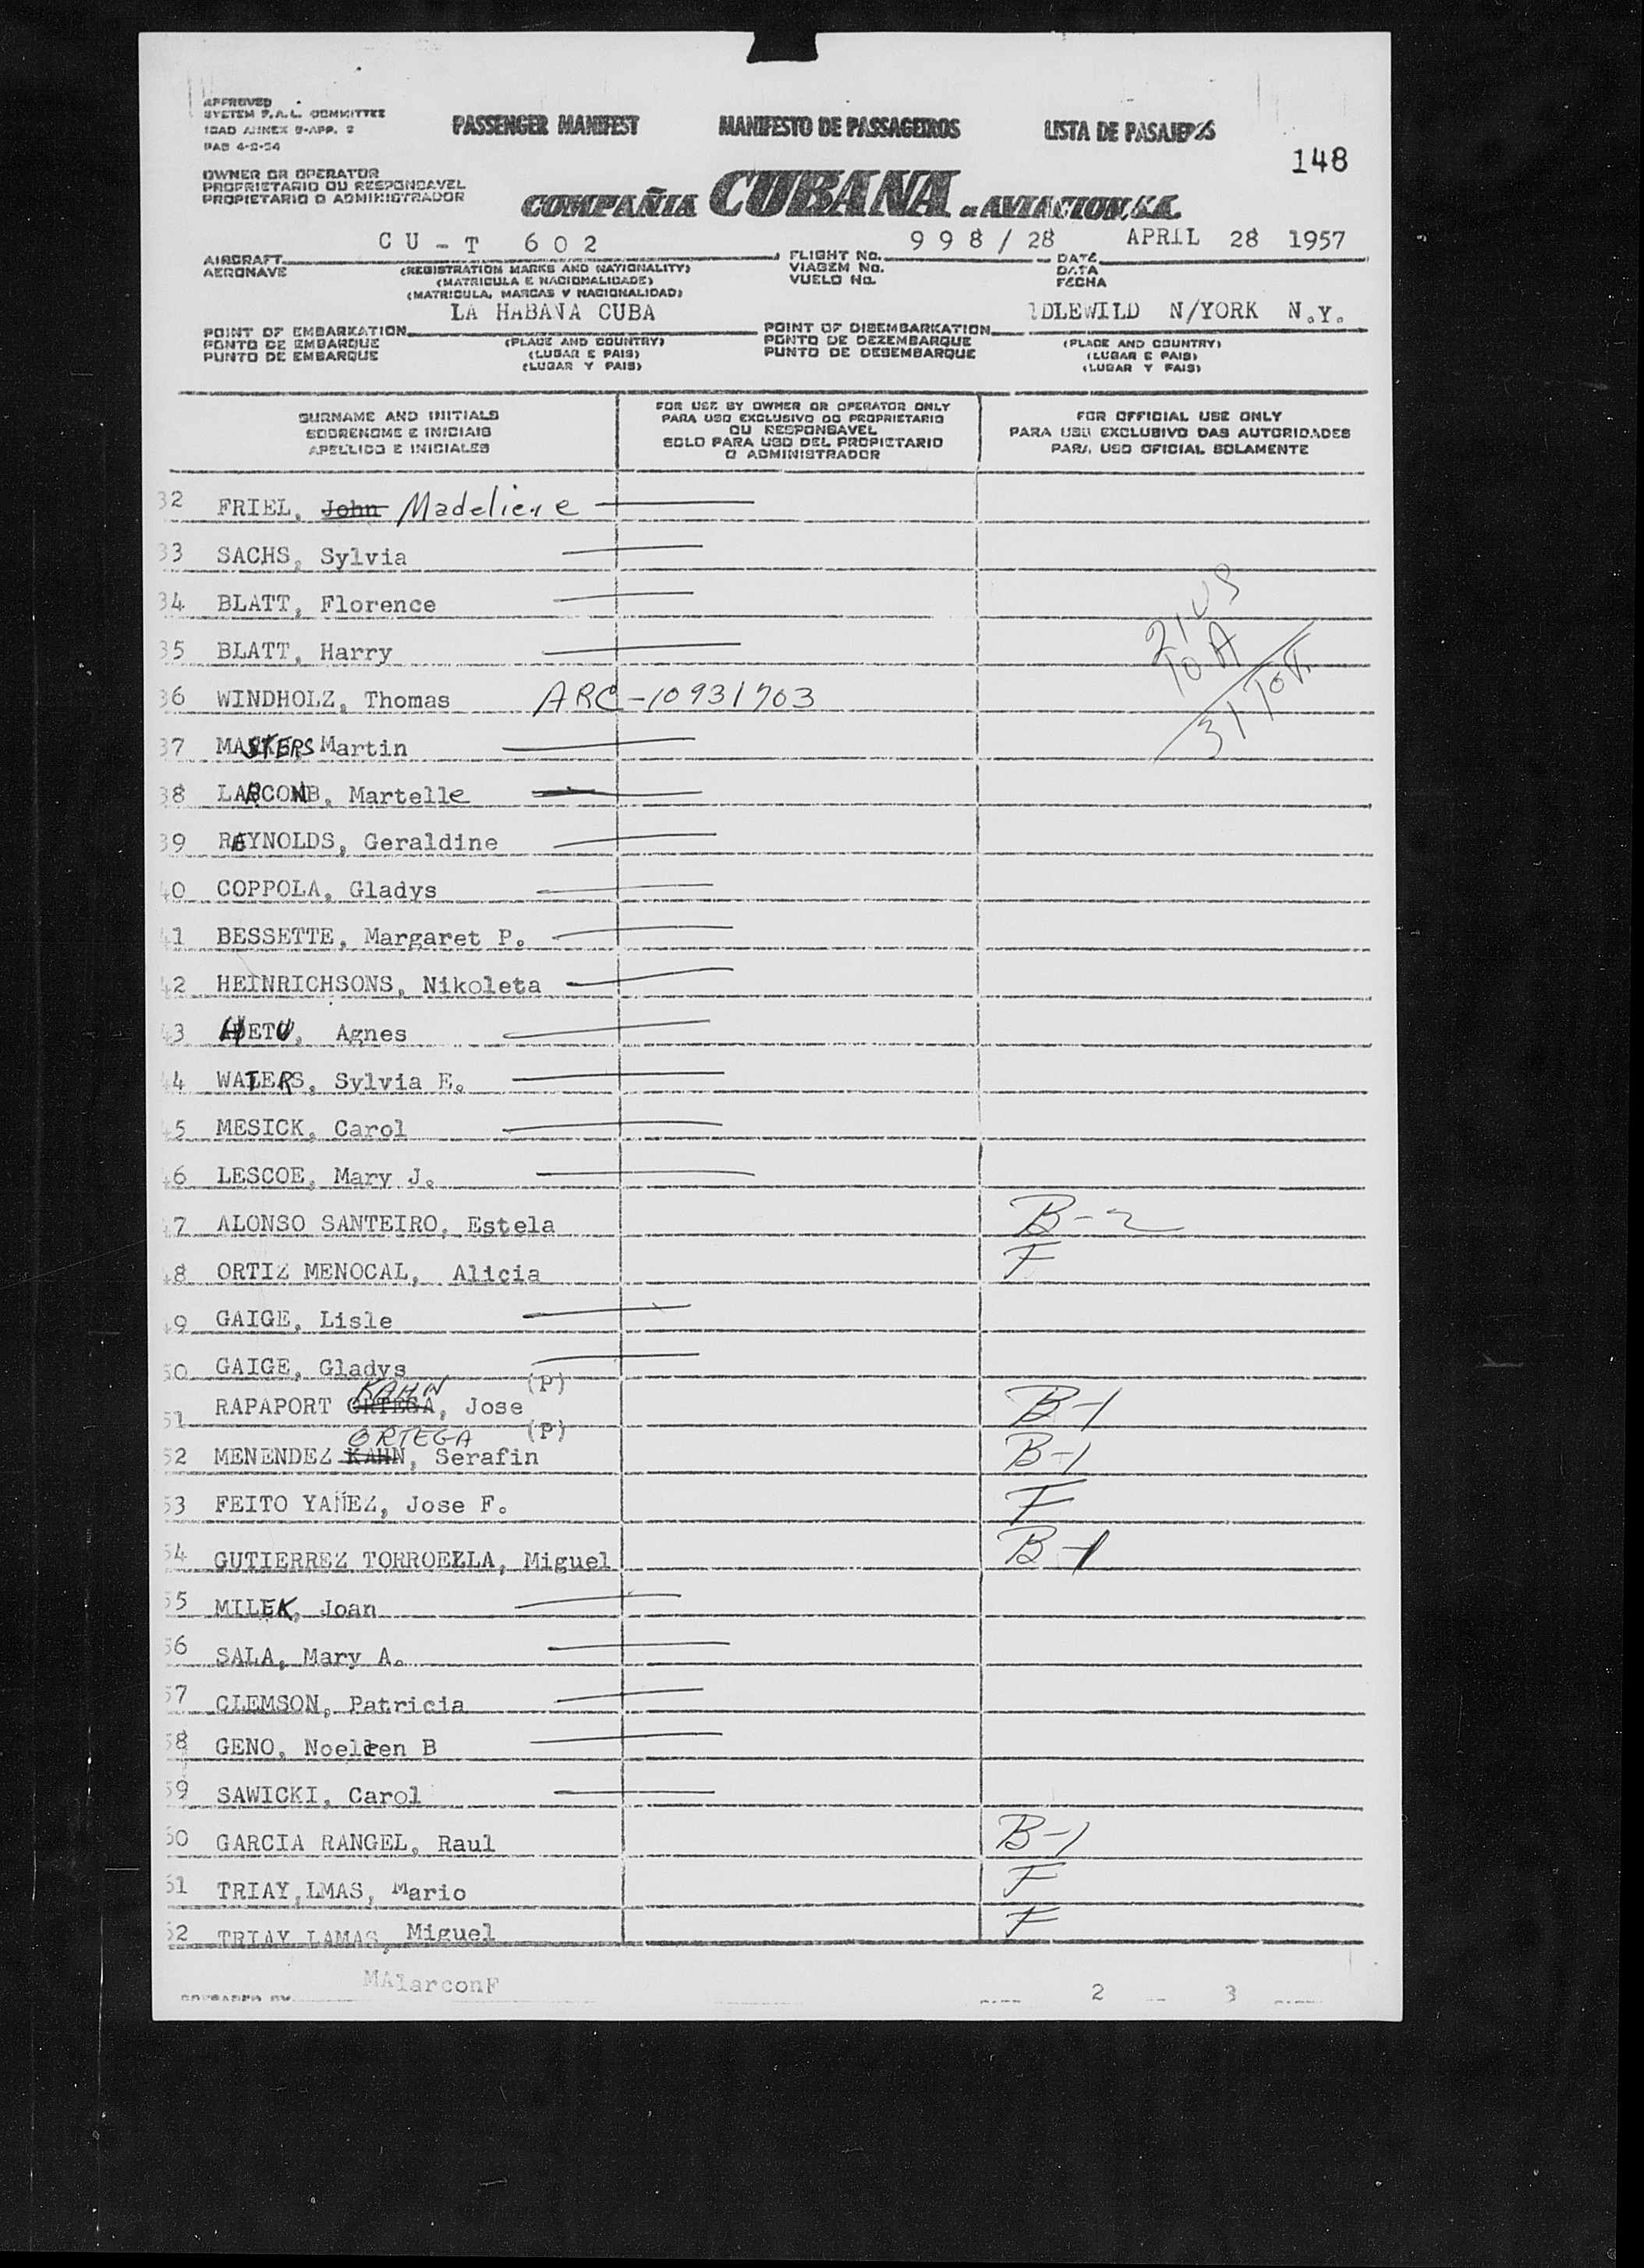 APPROVED
SYSTEM F.A.L. COMMITTEE
ICAO ANNEX 9-APP. 2
PAB 4-2-54
PASSENGER MANIFEST MANIFESTO DE PASSAGEIROS LISTA DE PASAJEROS
148
OWNER OR OPERATOR
PROPRIETARIO OU RESPONSAVEL
PROPIETARIO O ADMINISTRADOR
COMPAÑIA CUBANA DE AVIACION, S.A.
CU-T 602 998/28 APRIL 28 1957
AIRCRAFT FLIGHT No. DATE
AERONAVE (REGISTRATION MARKS AND NATIONALITY) VIAGEM No. DATA
(MATRICULA E NACIONALIDADE) VUELO No. FECHA
(MATRICULA, MARCAS Y NACIONALIDAD)
LA HABANA CUBA IDLEWILD N/YORK N.Y.
POINT OF EMBARKATION POINT OF DISEMBARKATION
PONTO DE EMBARQUE (PLACE AND COUNTRY) PONTO DE DEZEMBARQUE (PLACE AND COUNTRY)
PUNTO DE EMBARQUE (LUGAR E PAIS) PUNTO DE DESEMBARQUE (LUGAR E PAIS)
(LUGAR Y PAIS) (LUGAR Y PAIS)
SURNAME AND INITIALS
SOBRENOME E INICIAIS
APELLIDO E INICIALES
FOR USE BY OWNER OR OPERATOR ONLY
PARA USO EXCLUSIVO DO PROPRIETARIO
OU RESPONSAVEL
SOLO PARA USO DEL PROPIETARIO
O ADMINISTRADOR
FOR OFFICIAL USE ONLY
PARA USO EXCLUSIVO DAS AUTORIDADES
PARA USO OFICIAL SOLAMENTE
32 FRIEL, John Madeliene
33 SACHS, Sylvia
34 BLATT, Florence
35 BLATT, Harry
21 US
10 A
31 Tot.
36 WINDHOLZ, Thomas ARC-10931703
37 MASTERS Martin
38 LARCOMB, Martelle
39 REYNOLDS, Geraldine
40 COPPOLA, Gladys
41 BESSETTE, Margaret P.
42 HEINRICHSONS, Nikoleta
43 HETU, Agnes
44 WATERS, Sylvia E.
45 MESICK, Carol
46 LESCOE, Mary J.
47 ALONSO SANTEIRO, Estela B-2
48 ORTIZ MENOCAL, Alicia F
49 GAIGE, Lisle
50 GAIGE, Gladys
KAHN (P)
51 RAPAPORT ORTEGA, Jose B-1
ORTEGA (P)
52 MENENDEZ KAHN, Serafin B-1
53 FEITO YAÑEZ, Jose F. F
54 GUTIERREZ TORROELLA, Miguel B-1
55 MILEK, Joan
56 SALA, Mary A.
57 CLEMSON, Patricia
58 GENO, Noeleen B
59 SAWICKI, Carol
60 GARCIA RANGEL, Raul B-1
61 TRIAY,LMAS, Mario F
62 TRIAY LAMAS, Miguel F
MAlarconF
PREPARED BY 2 3